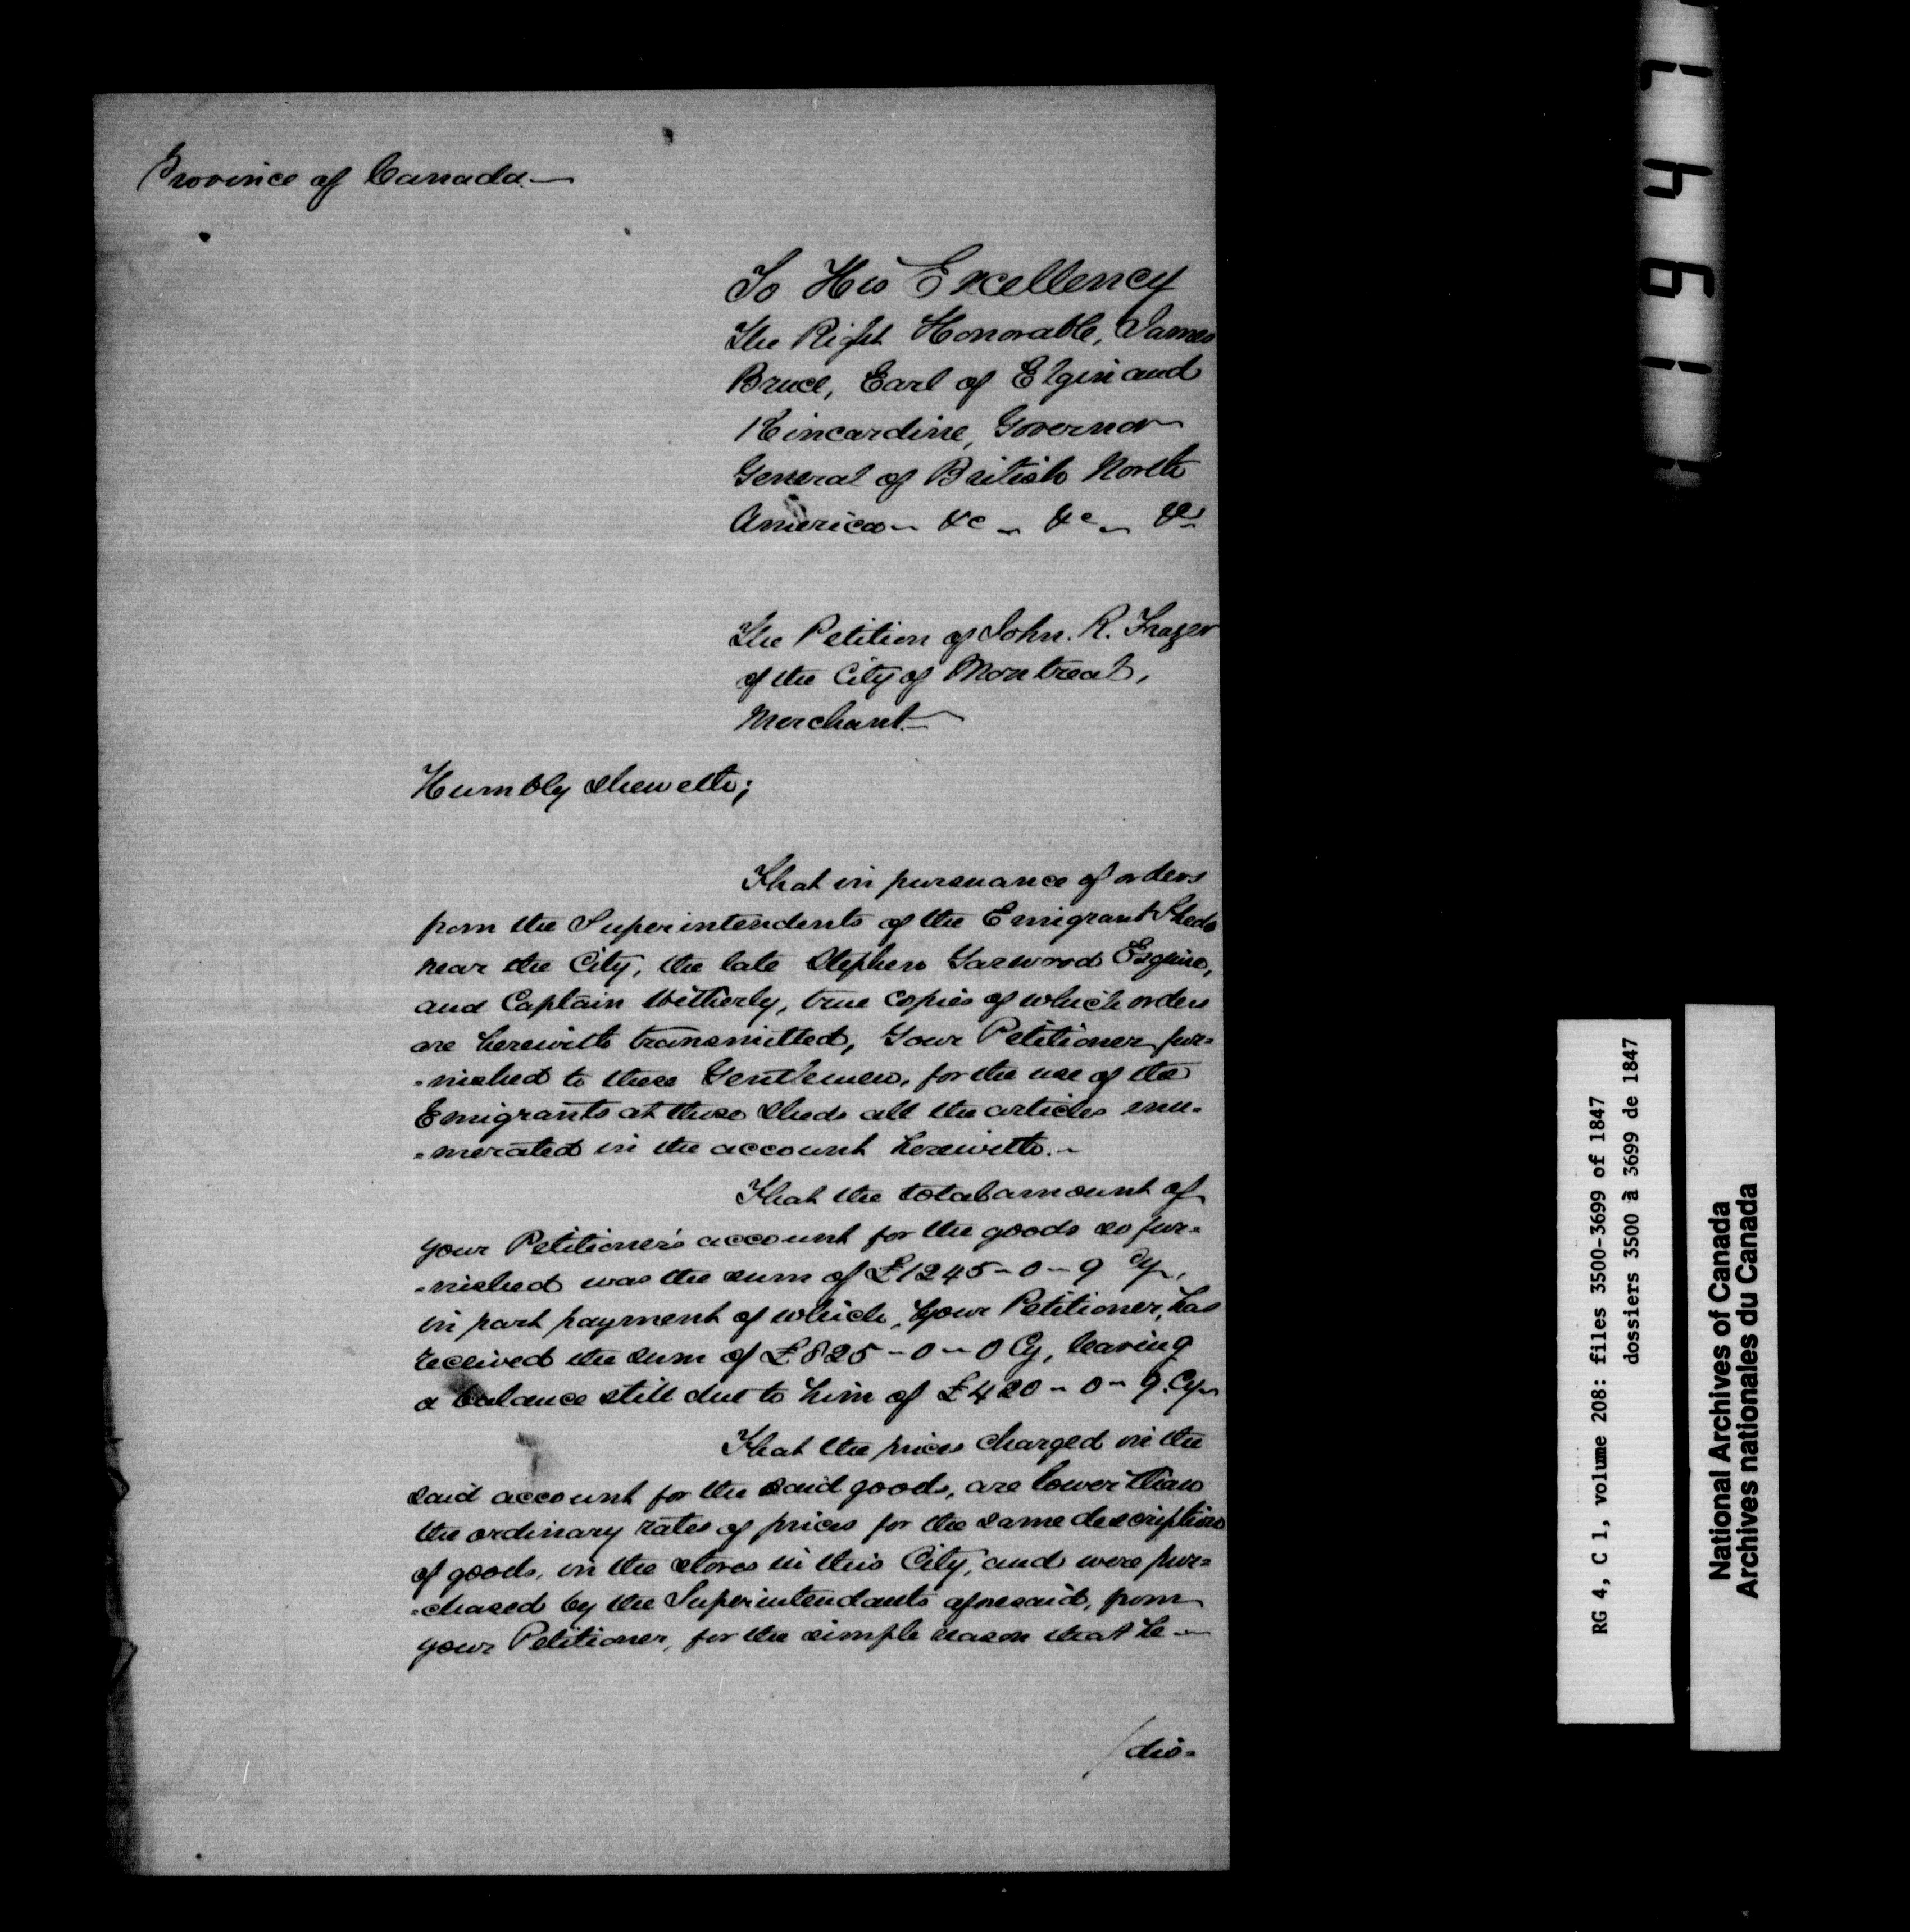 Province of Canada.—
To His Excellency
The Right Honorable, James
Bruce, Earl of Elgin and
Kincardine, Governor
General of British North
America - &c - &c - &c
The Petition of John. R. Frazer
of the City of Montreal,
Merchant.—
Humbly sheweth;
That in pursuance of orders
from the Superintendents of the Emigrant Sheds
near the City, the late Stephen Yarwood Esquire,
and Captain Wetherly, true copies of which orders
are herewith transmitted, Your Petitioner fur=
=nished to these Gentlemen, for the use of the
Emigrants at those Sheds all the articles enu=
=merated in the account herewith.-
That the total amount of
your Petitioner's account for the goods so fur=
=nished was the sum of £1245-0-9 Cy,
in part payment of which, Your Petitioner, has
received the sum of £825-0-0 Cy, leaving
a balance still due to him of £420-0-9. Cy-
That the prices charged in the
said account for the said goods, are lower than
the ordinary rates of prices for the same description
of goods, in the stores in this City, and were pur=
=chased by the Superintendants aforesaid, from
your Petitioner, for the simple reason that he -
/dis=
1 6 4 7
RG 4, C 1, volume 208: files 3500-3699 of 1847
dossiers 3500 à 3699 de 1847
National Archives of Canada
Archives nationales du Canada